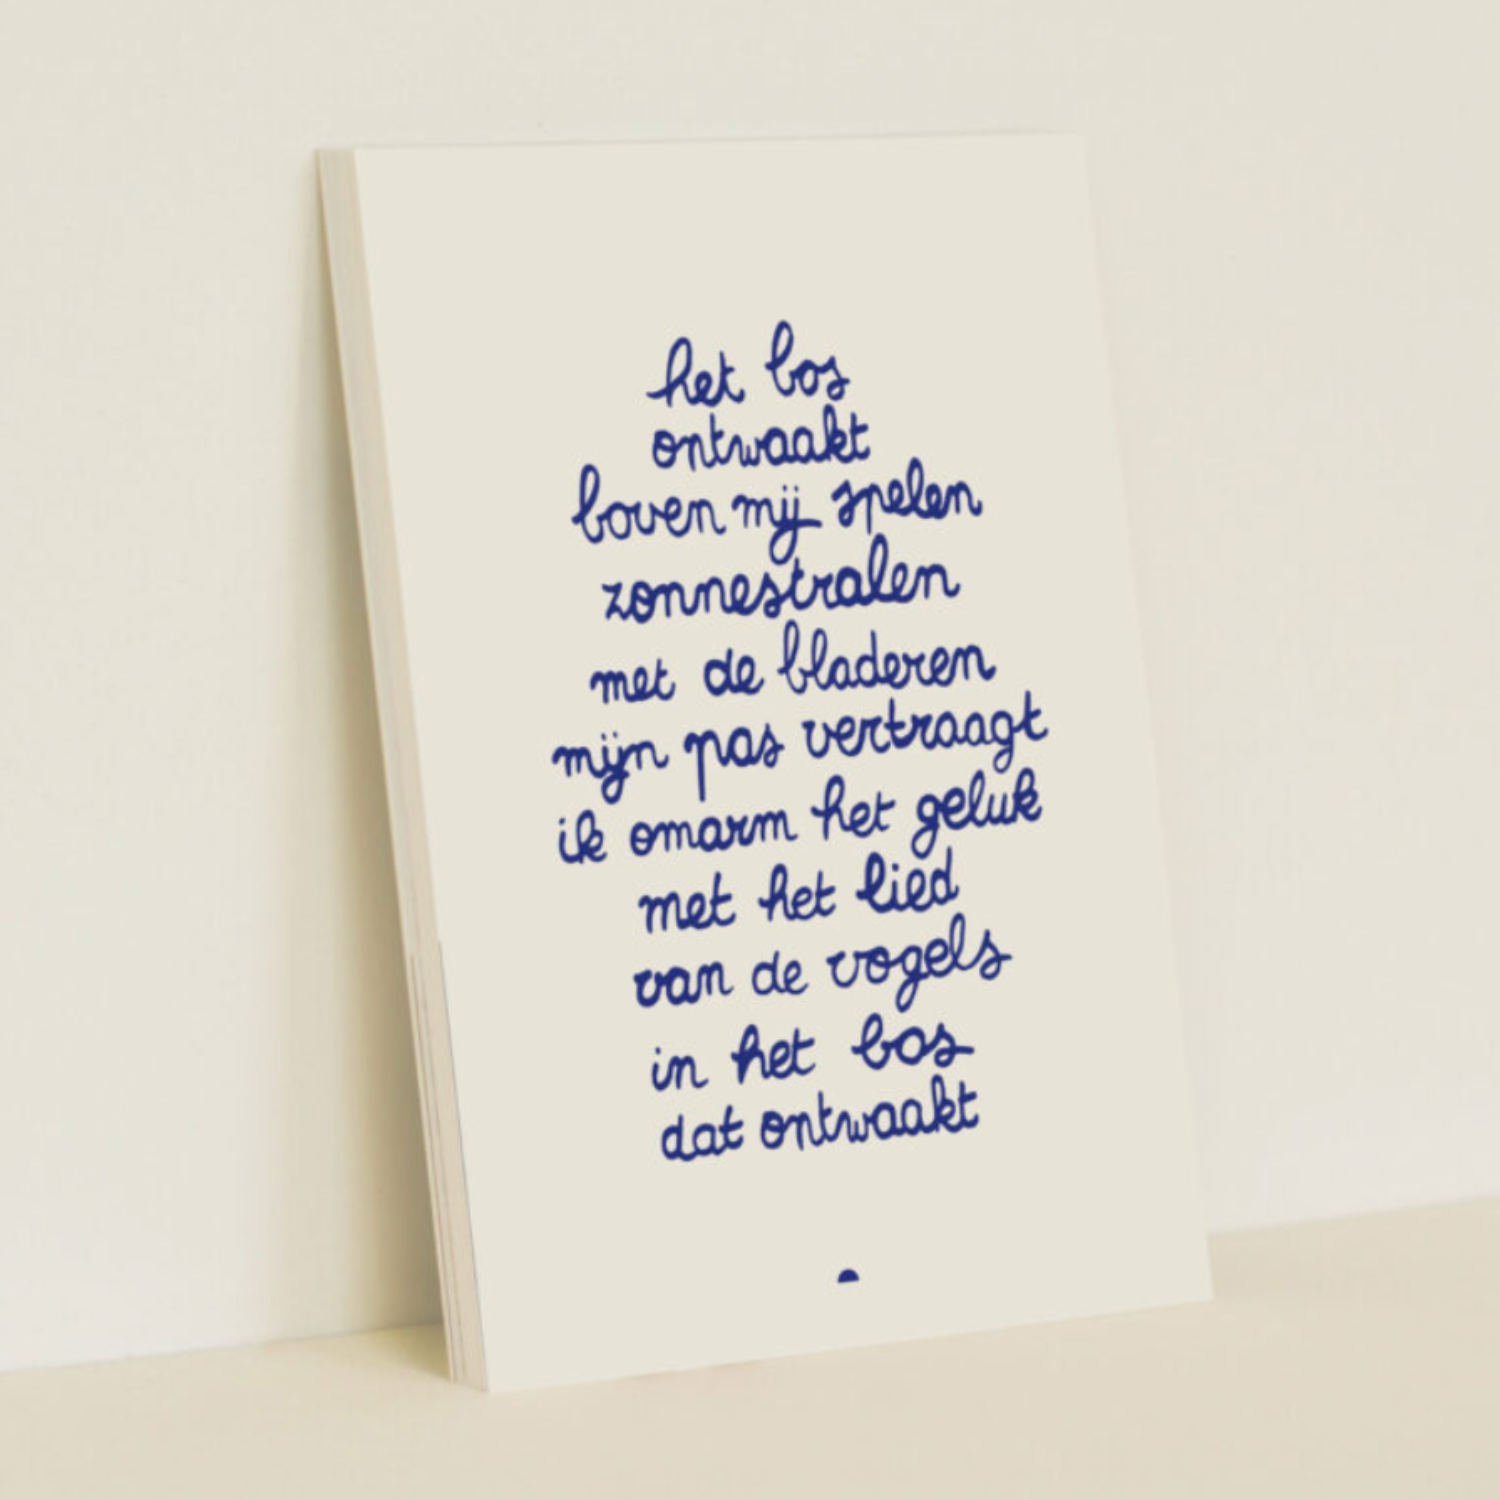 het bos
ontwaakt
boven mij spelen
zonnestralen
met de bladeren
mijn pas vertraagt
ik omarm het geluk
met het lied
van de vogels
in het bos
dat ontwaakt